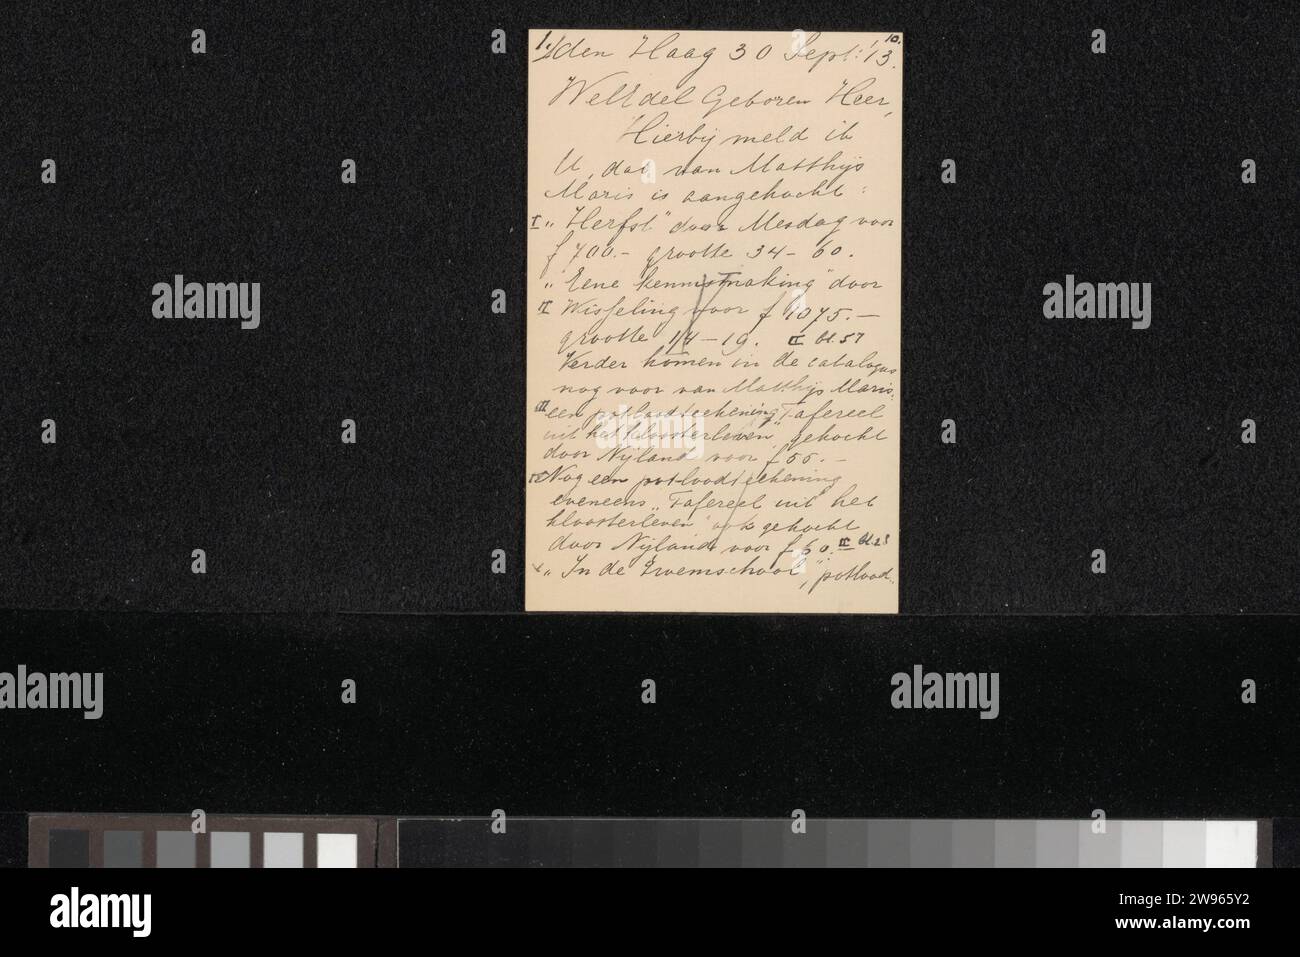 1./ den Haag 30 Sept: '13. 10.
WelEdel Geboren Heer,
Hierbij meld ik
U, dat van Matthijs
Maris is aangekocht:
I „Herfst" door Mesdag voor
f 700.- grootte 34-60.
„Eene kennismaking" door
II Wisseling voor f 1075.-
grootte 14-19. II bl.57
Verder komen in de catalogus
nog voor van Matthijs Maris:
III een potloodteekening, „Tafereel
uit het kloosterleven", gekocht
door Nijland voor f 55.-
Nog een potloodteekening
eveneens „Tafereel uit het
kloosterleven" ook gekocht
door Nijland voor f 60. II bl.28
„In de Zwemschool", potlood-
alamy
alamy
alamy
alamy
Image ID: 2W965Y2
www.alamy.com